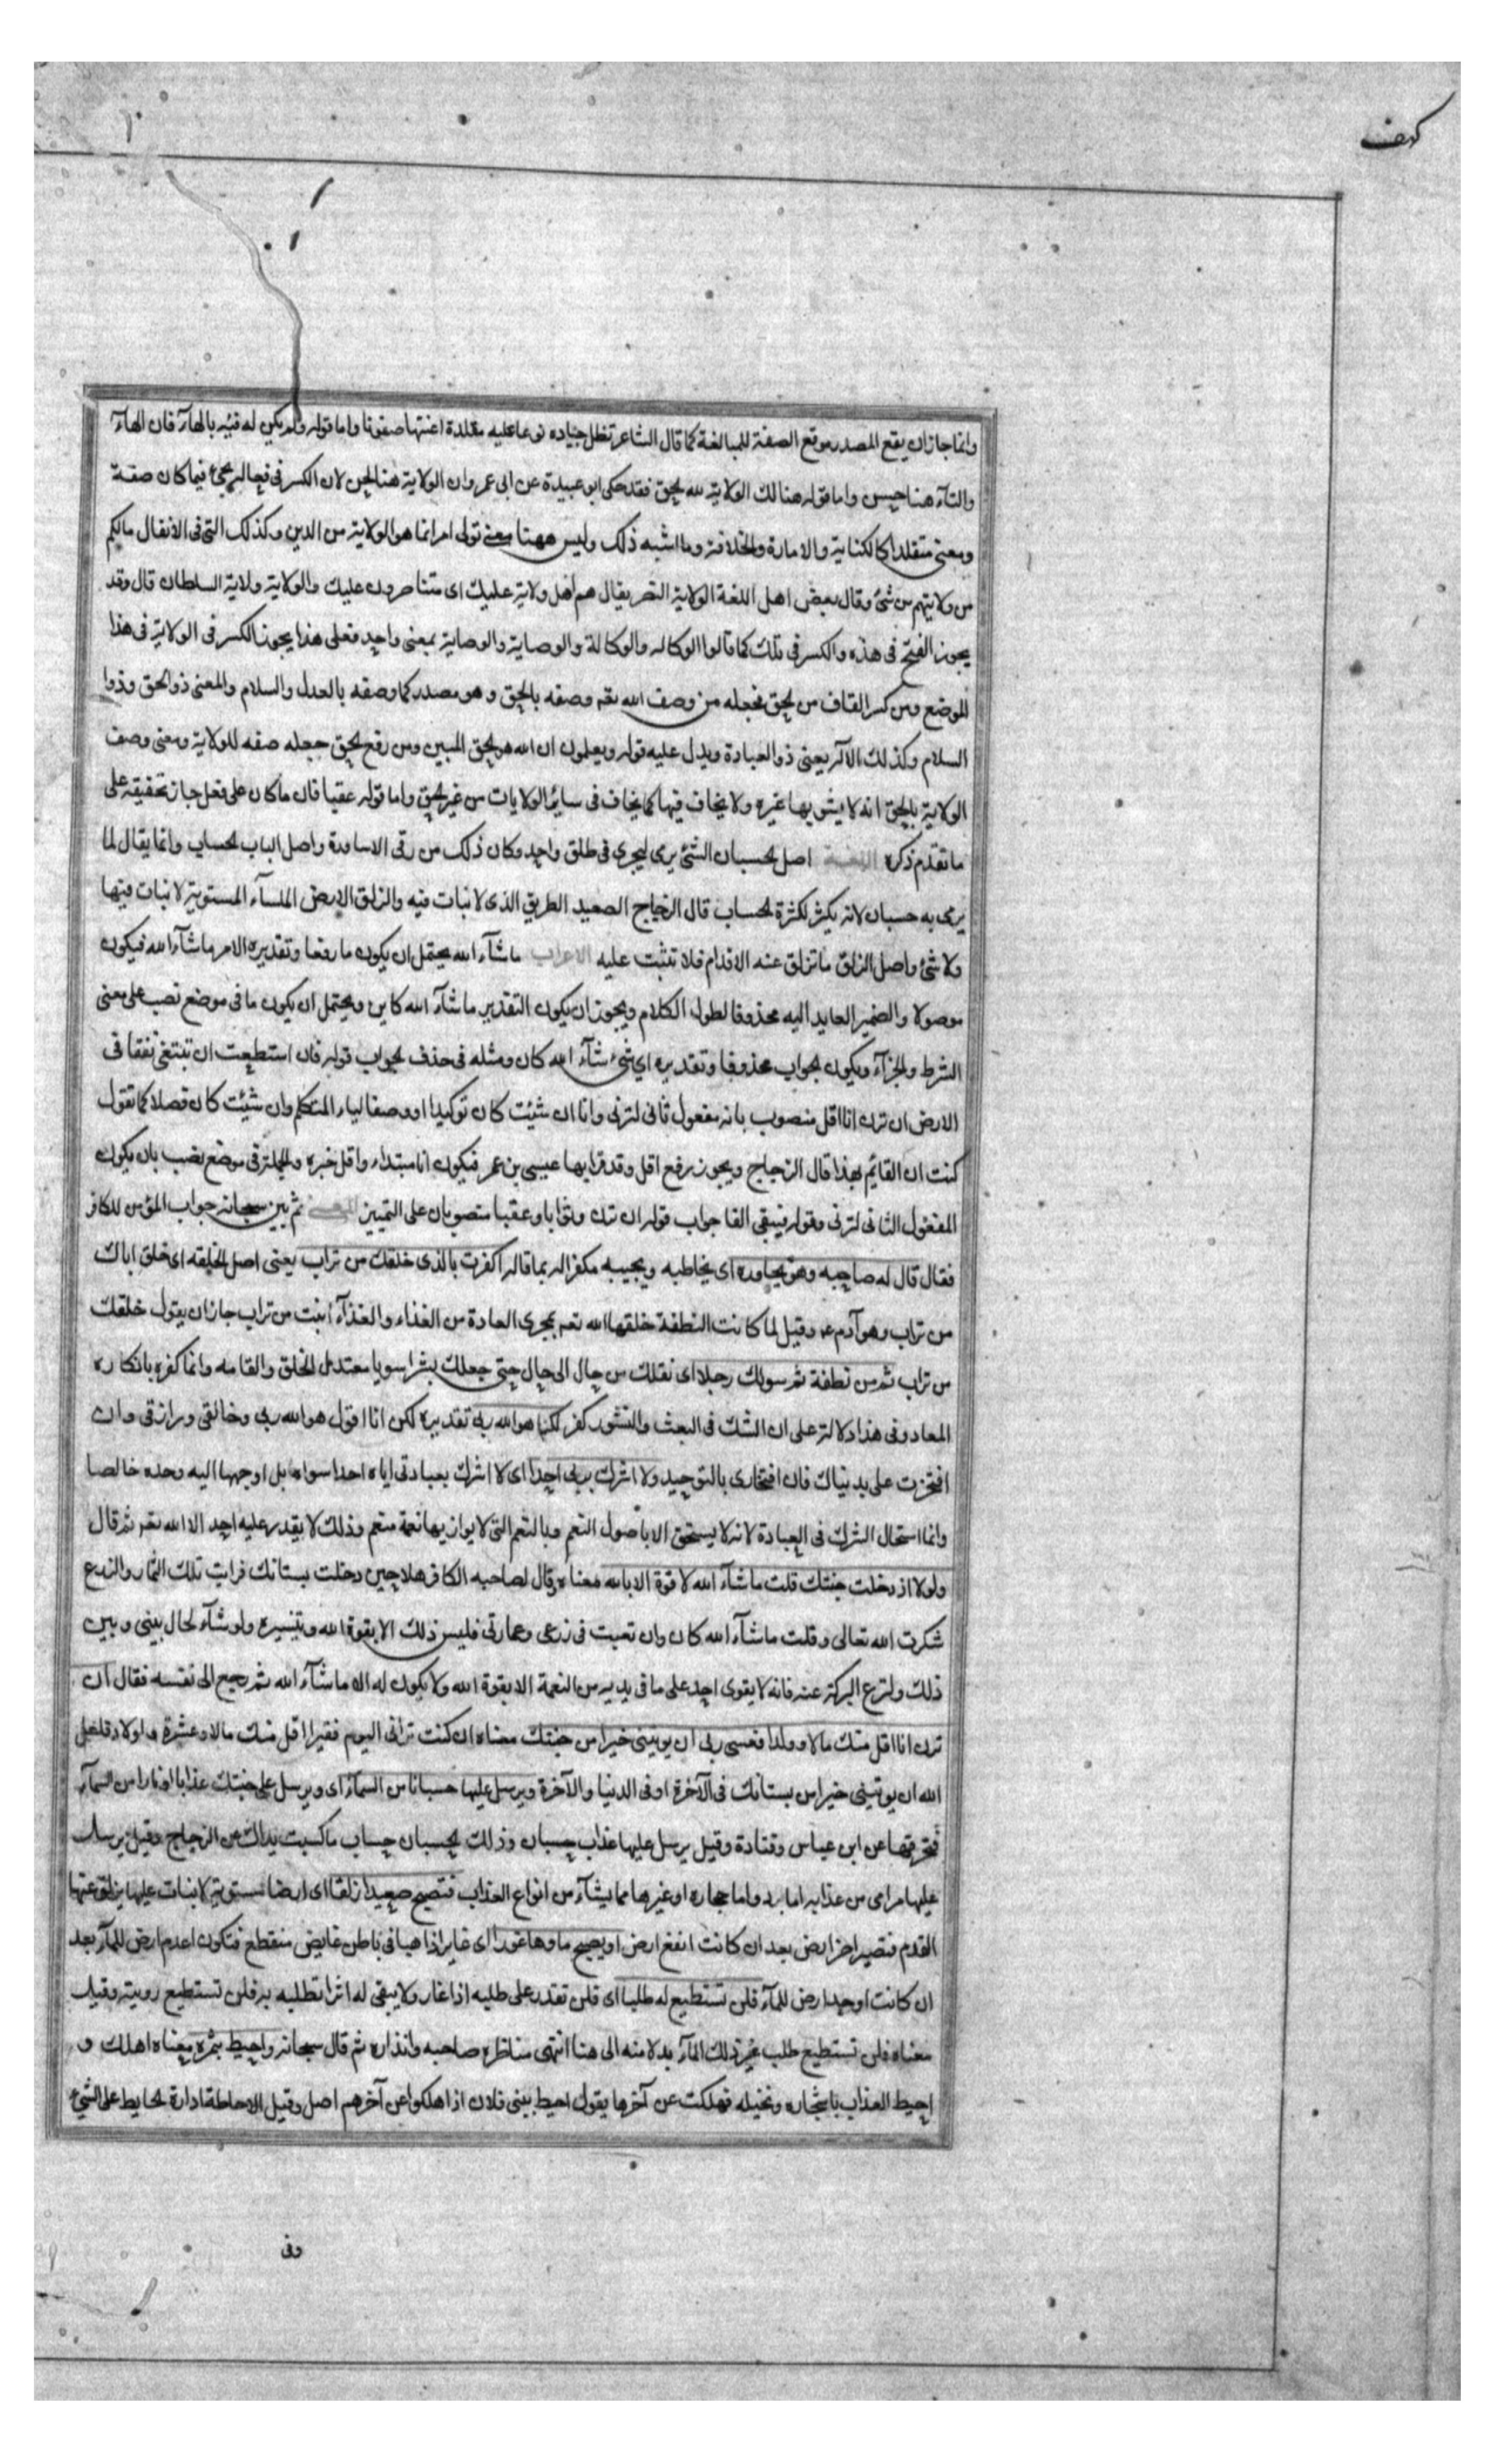 كهف
وانما جاز ان يقع المصدر موقع الصفة للمبالغة كما قال الشاعر تظل جياده نوحا عليه مقلدة اعنتها صفونا واما قوله ولم يكن له فئيه بالهاء فان الهآء
والتآء هنا حسن واما قوله هنالك الولاية لله الحق فقد حكى ابو عبيدة عن ابى عمرو ان الولاية هنا لحن لان الكسر فى فعالة يجئ فيما كان صفة
ومعنى متقلدا كالكتابة والامارة والخلافة وما اشبه ذلك وليس ههنا معنى تولى امر انما هو الولاية من الدين وكذلك التى فى الانفال مالكم
من ولايتهم من شئ وقال بعض اهل اللغة الولاية النصر يقال هم اهل ولاية عليك اى متناصرون عليك والولاية ولاية السلطان قال وقد
يجوز الفتح فى هذه والكسر فى تلك كما قالوا الوكاله والوكالة والوصاية والوصاية بمعنى واحد فعلى هذا يجوز الكسر فى الولاية فى هذا
الموضع ومن كسر القاف من الحق فجعله من وصف الله تعه وصفه بالحق وهو مصدر كما وصفه بالعدل والسلام والمعنى ذو الحق وذوا
السلام وكذلك الاله يعنى ذو العبادة ويدل عليه قوله ويعلمون ان الله هو الحق المبين ومن رفع الحق جعله صفه للولاية ومعنى وصف
الولاية بالحق انه لا يشوبها غيره ولا يخاف فيها كما يخاف فى سائر الولايات من غير الحق واما قوله عقبا فان ماكان على فعل جاز تخفيفه على
ما تقدم ذكره اللغة اصل الحسبان الشئ يرمى ليجرى فى طلق واحد وكان ذلك من رقى الاساورة واصل الباب الحساب وانما يقال لما
يرمى به حسبان لانه يكثر لكثرة الحساب قال الزجاج الصعيد الطريق الذى لا نبات فيه والزلق الارض الملسآء المستوية لا نبات فيها
ولا شئ واصل الزلق ما تزلق عنه الاقدام فلا تثبت عليه الاعراب ما شآء الله يحتمل ان يكون ما رفعا وتقديره الامر ما شآء الله فيكون
موصولا والضمير العايد اليه محذوفا لطول الكلام ويجوز ان يكون التقدير ما شآء الله كاين ويحتمل ان يكون ما فى موضع نصب على معنى
الشرط والجزآء ويكون الجواب محذوفا وتقديره اى شئ شآء الله كان ومثله فى حذف الجواب قوله فان استطعت ان تبتغى نفقا فى
الارض ان ترن انا اقل منصوب بانه مفعول ثانى لترنى وانا ان شئت كان توكيدا او وصفا لياء المتكلم وان شئت كان فصلا كما تقول
كنت ان القائم بهذا قال الزجاج ويجوز رفع اقل وقد قرا بها عيسى بن عمر فيكون انا مبتداء واقل خبره والجملة فى موضع نصب بان يكون
المفعول الثانى لترنى وقوله فيبقى الفا جواب قوله ان ترن وثوابا وعقبا منصوبان على التمييز المعنى ثم بين سبحانه جواب المؤمن للكافر
فقال قال له صاحبه وهو يحاوره اى يخاطبه ويجيبه مكفرا له بما قاله اكفرت بالذى خلقك من تراب يعنى اصل الخلقه اى خلق اباك
من تراب وهو آدم عه وقيل لما كانت النطفة خلقها الله تعه بمجرى العادة من الغذاء والغذآء انبت من تراب جاز ان يقول خلقك
من تراب ثم من نطفة ثم سولك رجلا اى نقلك من حال الى حال حتى جعلك بشرا سويا معتدل الخلق والقامه وانما كفره بانكاره
المعاد وفى هذا دلالة على ان الشك فى البعث والنشور كفر لكنا هو الله ربى تقديره لكن انا اقول هو الله ربى وخالقى ورازقى وان
افتخرت على بدنياك فان افتخارى بالتوحيد ولا اشرك بربى احدا اى لا اشرك بعبادتى اياه احدا سواه بل اوجهها اليه وحده خالصا
وانما استحال الشرك فى العبادة لانه لا يستحق الا باصول النعم وبالنعم التى لا يوازيها نعمة منعم وذلك لا يقدر عليه احد الا الله تعه ثم قال
ولولا اذ دخلت جنتك قلت ما شآء الله لا قوة الا بالله معناه وقال لصاحبه الكافر هلا حين دخلت بستانك فرايت تلك الثمار والزرع
شكرت الله تعالى وقلت ما شآء الله كان وان تعبت فى زرعى وعمارتى فليس ذلك الا بقوة الله وتيسيره ولو شآء لحال بينى وبين
ذلك ولنزع البركة عنه فانه لا يقوى احد على ما فى يديه من النعمة الا بقوة الله ولا يكون له الا ما شآء الله ثم رجع الى نفسه فقال ان
ترن انا اقل منك مالا وولدا فعسى ربى ان يوتينى خيرا من جنتك معناه ان كنت ترانى اليوم فقيرا اقل منك مالا وعشرة واولاد فلعل
الله ان يوتينى خيرا من بستانك فى الآخرة او فى الدنيا والآخرة ويرسل عليها حسبانا من السمآء اى ويرسل على جنتك عذابا او نارا من السمآء
فتحرقها عن ابن عباس وقتادة وقيل يرسل عليها عذاب حسبان وذلك الحسبان حساب ما كسبت يداك عن الزجاج وقيل يرسل
عليها مرامى من عذابه اما برد واما حجاره او غيرها مما يشآء من انواع العذاب فتصبح صعيدا زلقا اى ارضا مستوية لا نبات عليها يزلق عنها
القدم فتصير اضر ارض بعد ان كانت انفع ارض او يصبح ماوها غورا اى غايرا ذاهبا فى باطن غايض منقطع فتكون اعدم ارض للمآء بعد
ان كانت اوجد ارض للمآء فلن تستطيع له طلبا اى فلن تقدر على طلبه اذا غار ولا يبقى له اثر اتطلبه به فلن تستطيع رويته وقيل
معناه فلن تستطيع طلب غير ذلك المآء بدلا منه الى هنا انتهى مناظره صاحبه وانذاره ثم قال سبحانه واحيط بثمره معناه اهلك و
احيط العذاب باشجاره ونخيله فهلكت عن آخرها يقول احيط ببنى فلان اذا هلكوا عن آخرهم اصل وقيل الاحاطة ادارة الحايط على الشئ
وفى